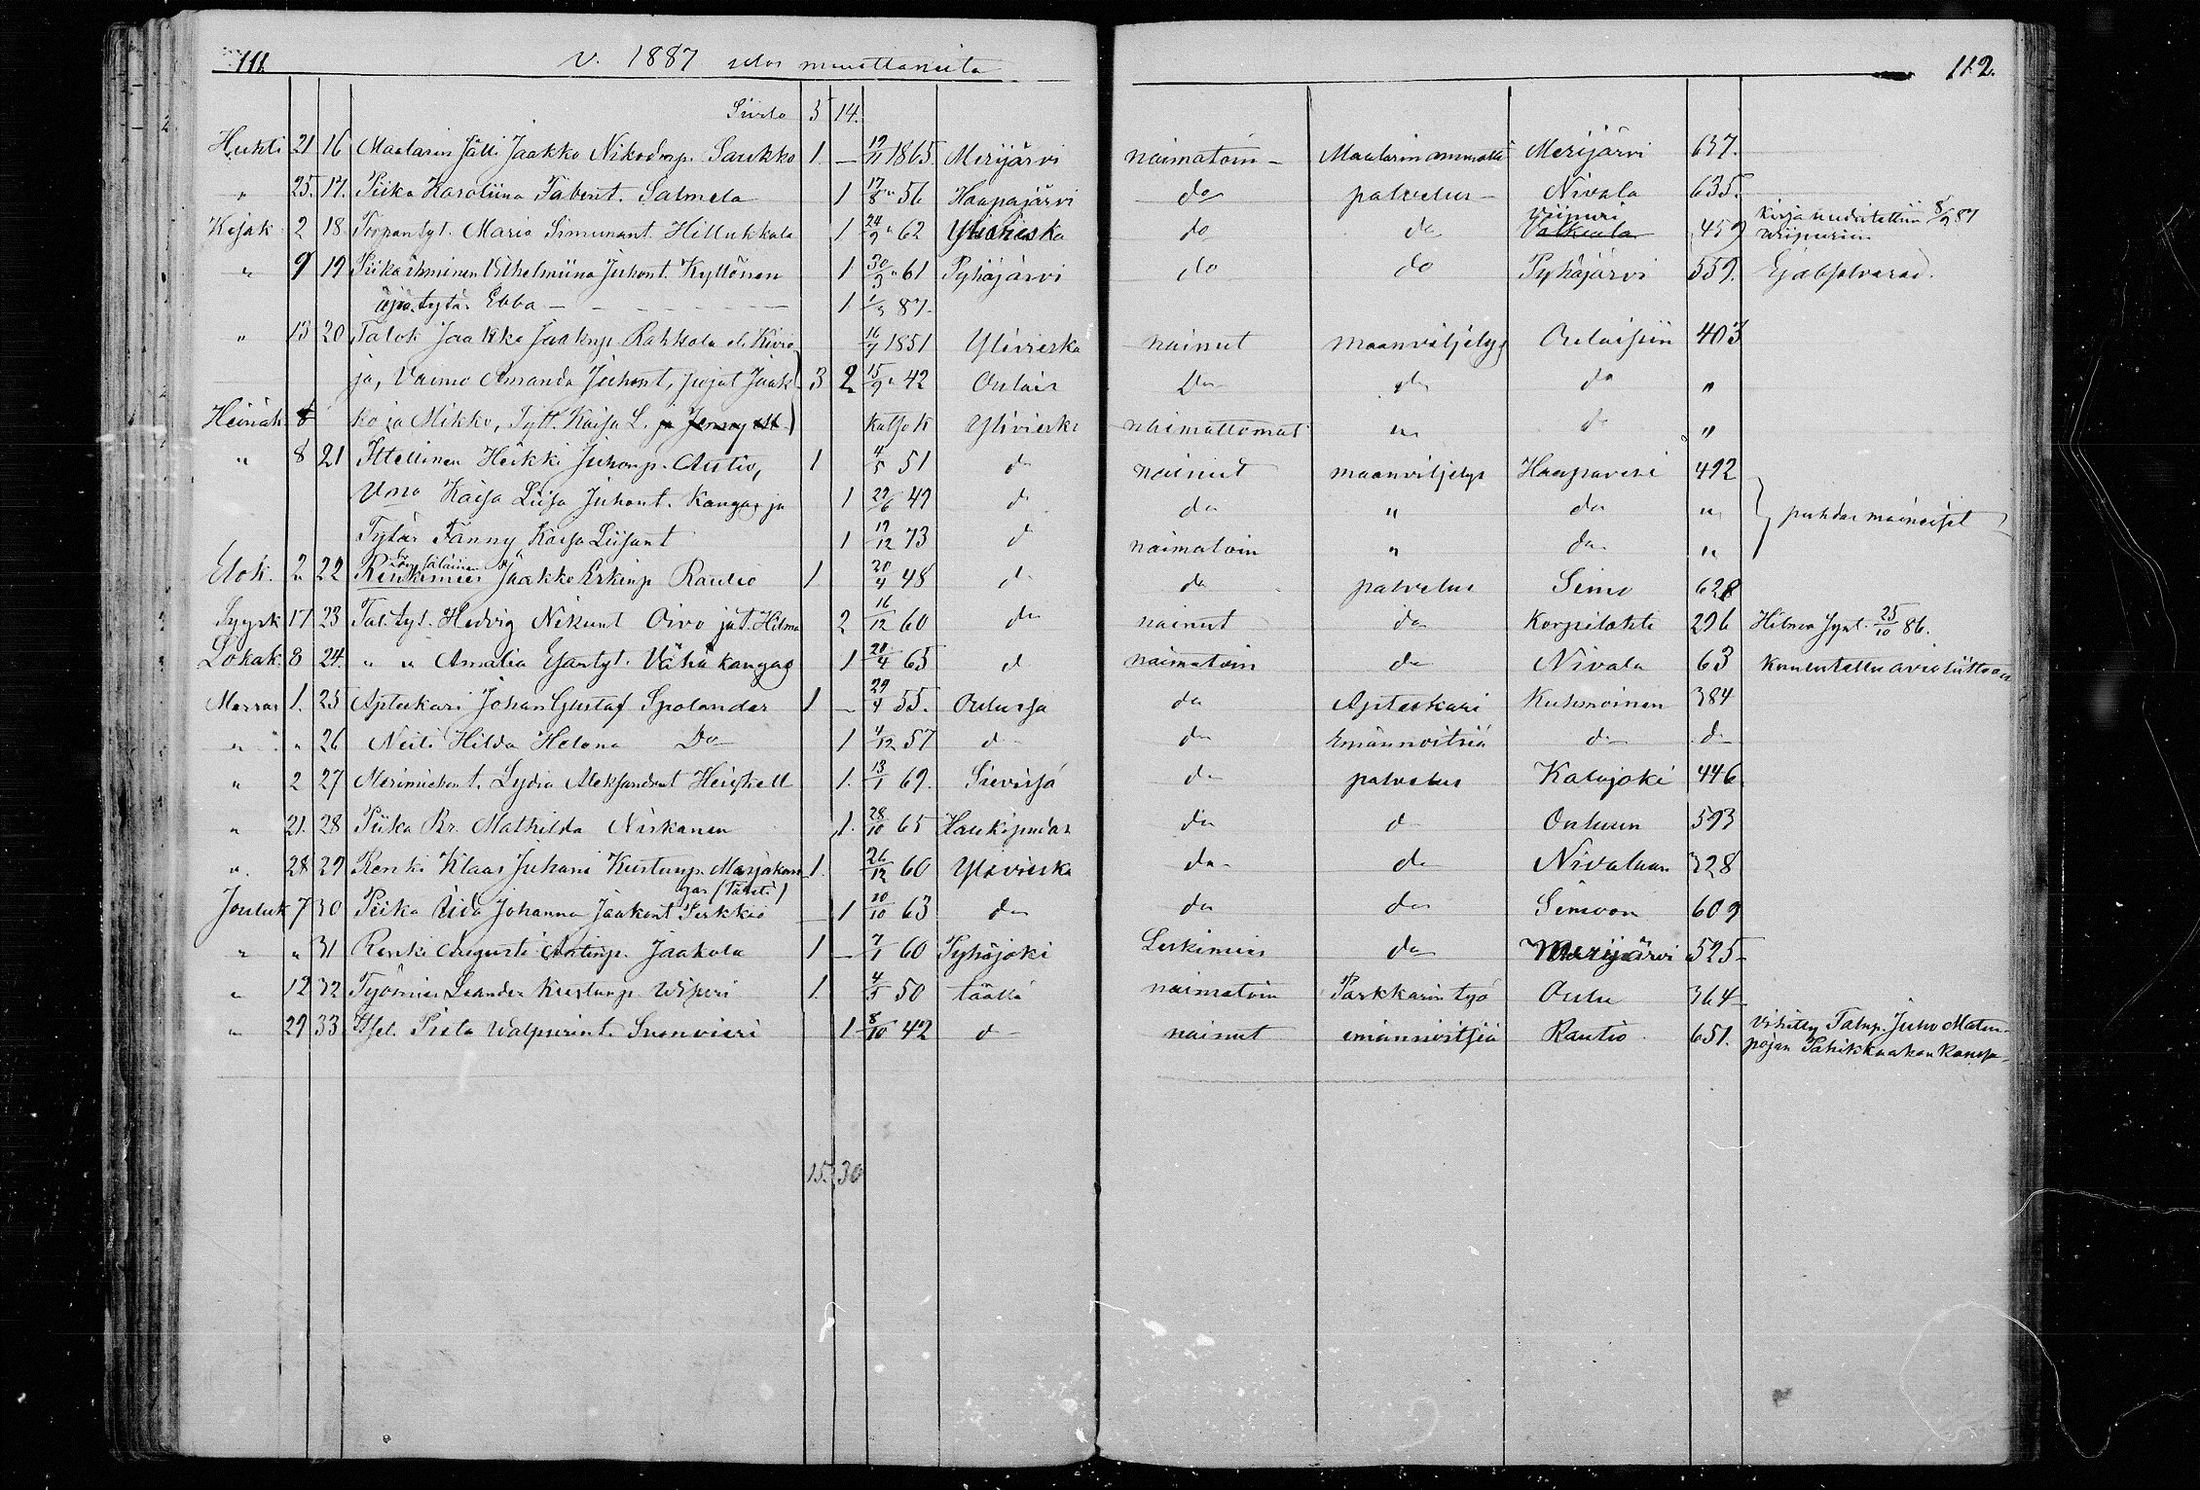 111. V. 1887 ulos muuttaneita 112.
Siirto 5 14.
Huhti 21 16 Maalarin Sälli Jaakko Nikodmp. Saukko 1 — 19/11 1865 Merijärvi naimatoin — Maalarin ammatti Merijärvi 637.
" 25. 17. Piika Karoliina Fabent. Salmela 1 17/8 " 56 Haapajärvi do palvelus — Nivala 635.
Viipuri Kirja uudistettiin 8/9 87
Kesäk. 2 18 Torpantyt. Maria Simunant. Hillukkala 1 24/9 " 62 Ylivieska do do Valkeala 459 Wiipuriin
" 9 19 Piikaihminen Wilhelmiina Juhont. Kyllönen 1 30/3 " 61 Pyhäjärvi do do Pyhäjärvi 559. Ej absolverad.
äpärätytär Ebba — 1 1/3 87.
" 13 20 Talok Jaakko Jaakonp. Rahkola 16/7 1851 Ylivieska nainut maanviljelys Oulaisiin 403
ja, Vaimo Amanda Juhont, pojat Jaak 3 2 15/9 " 42 Oulais Do do do "
Heinäk. ko ja Mikko, Tytt. Kaisa L. ja Jenny katsok Ylivieska naimattomat " do "
" 8 21 Itsellinen Heikki Juhonp. Autio, 1 4/5 51 do nainut maanviljelys Haapavesi 492
Vmo Kaisa Liisa Juhont. Kangas ja 1 29/6 49 d do " do " puhdasmaineiset
Tytär Fanny Kaisa Liisant 1 19/12 73 d naimatoin " do "
Elok. 2 22 Renkimies Jaakko Erkinp Rautio 1 20/4 48 d. do palvelus Simo 628
Syysk 17 23 Tal. tyt. Hedvig Nikunt Oivo ja t. Hilma 2 16/12 60 do nainut do Korpilahti 296 Hilma synt. 25/10 86.
Lokak. 8 24. " " Amalia Esantyt. Vähäkangas 1 20/4 65 d naimatoin do Nivala 63 kuulutettu avioliittoon
Marras 1. 25 Apteekari Johan Gustaf Spolander 1 — 29/4 55. Oulussa do Apteekari Kuhmoinen 384
" " 26 Neiti Hilda Helena Do 1 4/12 57 d do Emännöitsiä do d
" 2 27 Merimiehent. Lydia Aleksandert Heiskell 1. 13/1 69. Sievissä do palvelus Kalajoki 446
" 21. 28 Piika Br. Mathilda Niskanen 1. 28/10 65 Haukipudas do d Ouluun 593
" 28 29 Renki Klaas Juhani Kustunp. Marjakan 1. 26/12 60 Ylivieska do. do Nivalaan 328
gas
Jouluk 7 30 Piika Iida Johanna Jaakont Perkkiö 1 10/10 63 do do do Simoon 609
" " 31 Renki Augusti Antinp. Jaakola 1 — 7/1 60 Pyhäjoki Leskimies do Merijärvi 525
" 12 32 Työmies Leander Kustunp. Wiskeri 1. 4/5 50 täällä naimatoin Parkkarin työ Oulu 364
" 29 33 Itsel. Pieta Walpurint. Suonvieri 1 8/10 42 d nainut emännöitsiä Rautio 651. Vihitty Talnp. Juho Matin-
pojan kanssa
15. 30